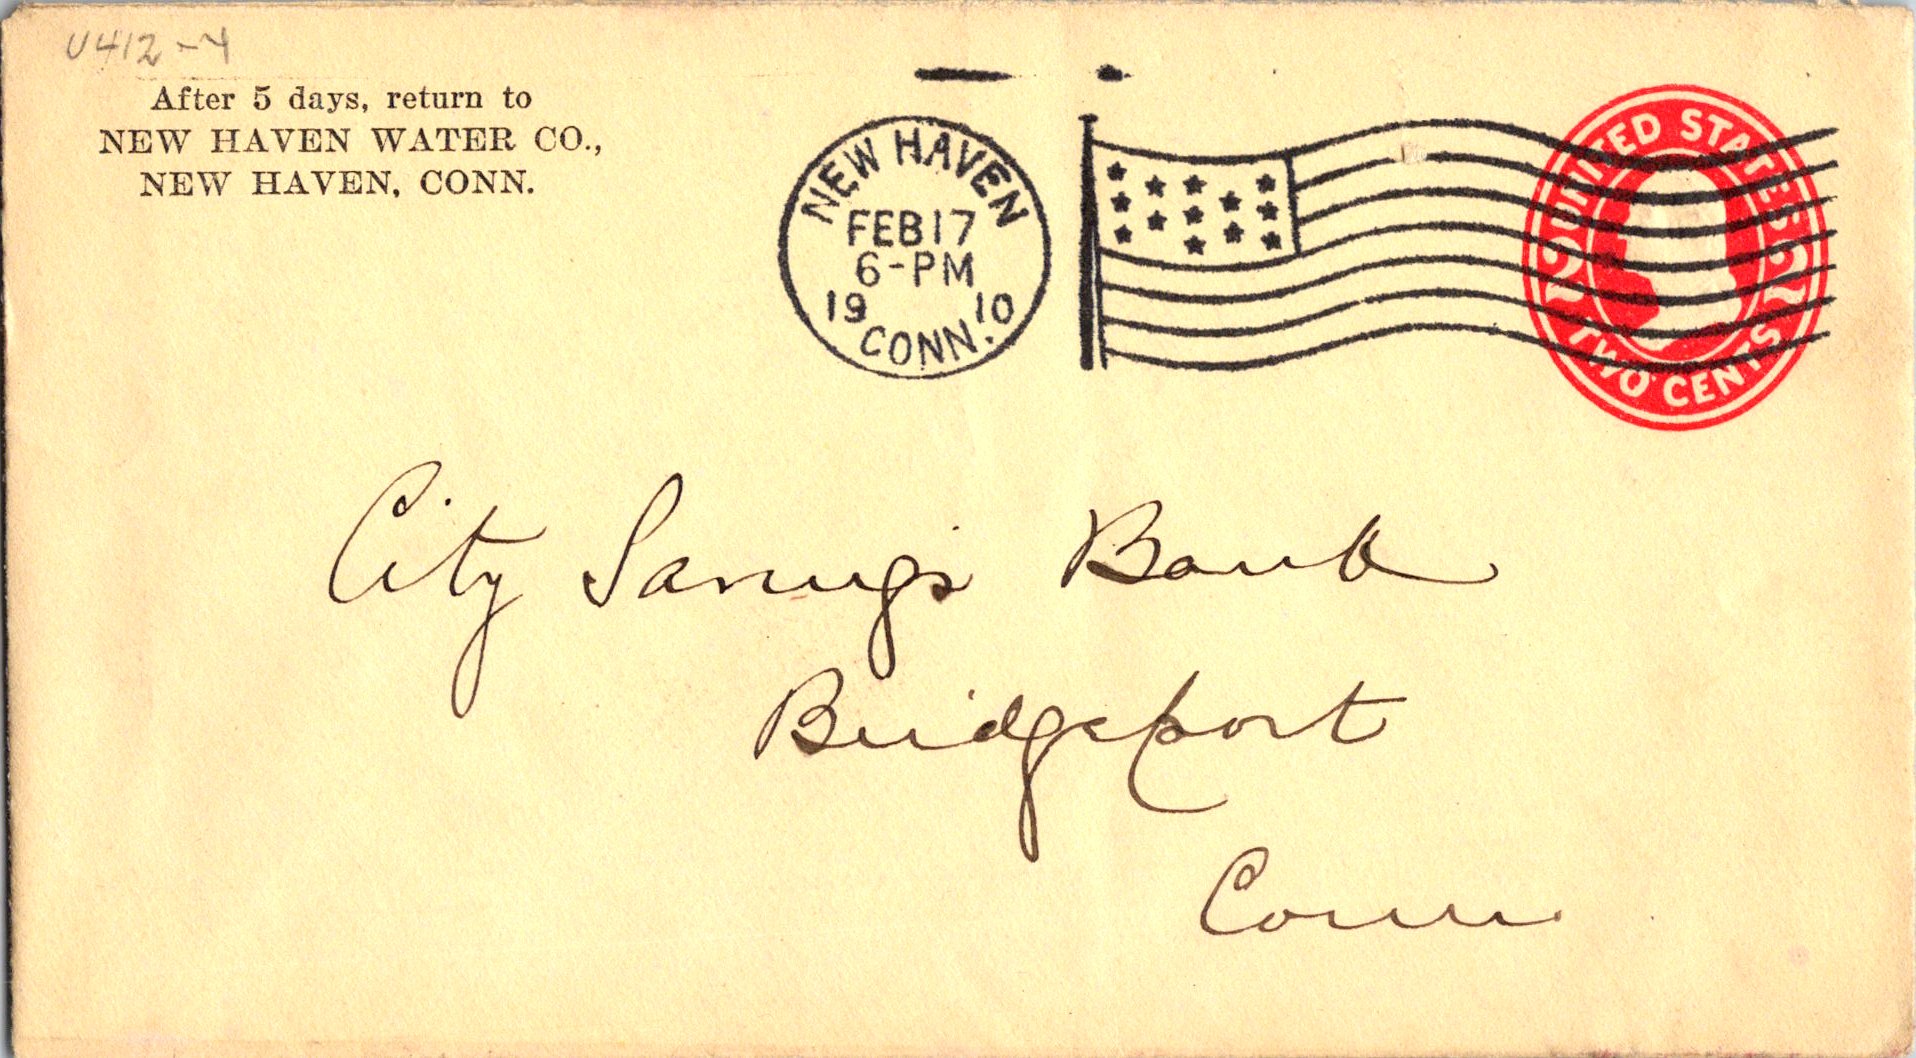 U412-4
After 5 days, return to
NEW HAVEN WATER CO.,
NEW HAVEN, CONN.
NEW HAVEN
FEB 17
6-PM
19 10
CONN.
UNITED STATES
2 2
TWO CENTS
City Savings Bank
Bridgeport
Conn